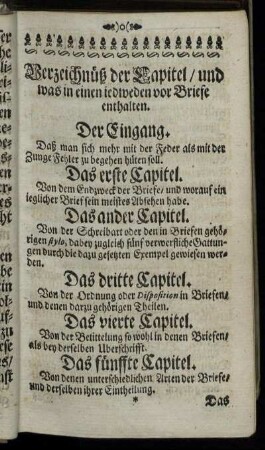 Verzeichnüß der Capitel/ und
was in einen iedweden vor Briefe
enthalten.
Der Eingang.
Daß man sich mehr mit der Feder als mit der
Zunge Fehler zu begehen hüten soll.
Das erste Capitel.
Von dem Endzweck der Briefe/ und worauf ein
ieglicher Brief sein meistes Absehen habe.
Das ander Capitel.
Von der Schreibart oder den in Briefen gehö-
rigen stylo, dabey zugleich fünf verwerfliche Gattun-
gen durch die dazu gesetzten Exempel gewiesen wer-
den.
Das dritte Capitel.
Von der Ordnung oder Disposition in Briefen/
und denen darzu gehörigen Theilen.
Das vierte Capitel.
Von der Betittelung so wohl in denen Briefen/
als bey derselben Uberschrifft.
Das fünffte Capitel.
Von denen unterschiedlichen Arten der Briefe/
und derselben ihrer Eintheilung.
* Das